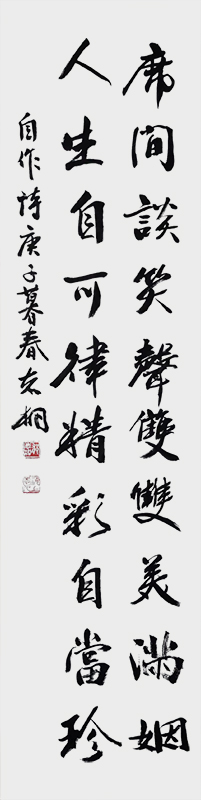 席間談笑聲雙雙美満姻
人生自可律精彩自當珍
自作诗庚子暮春志桐